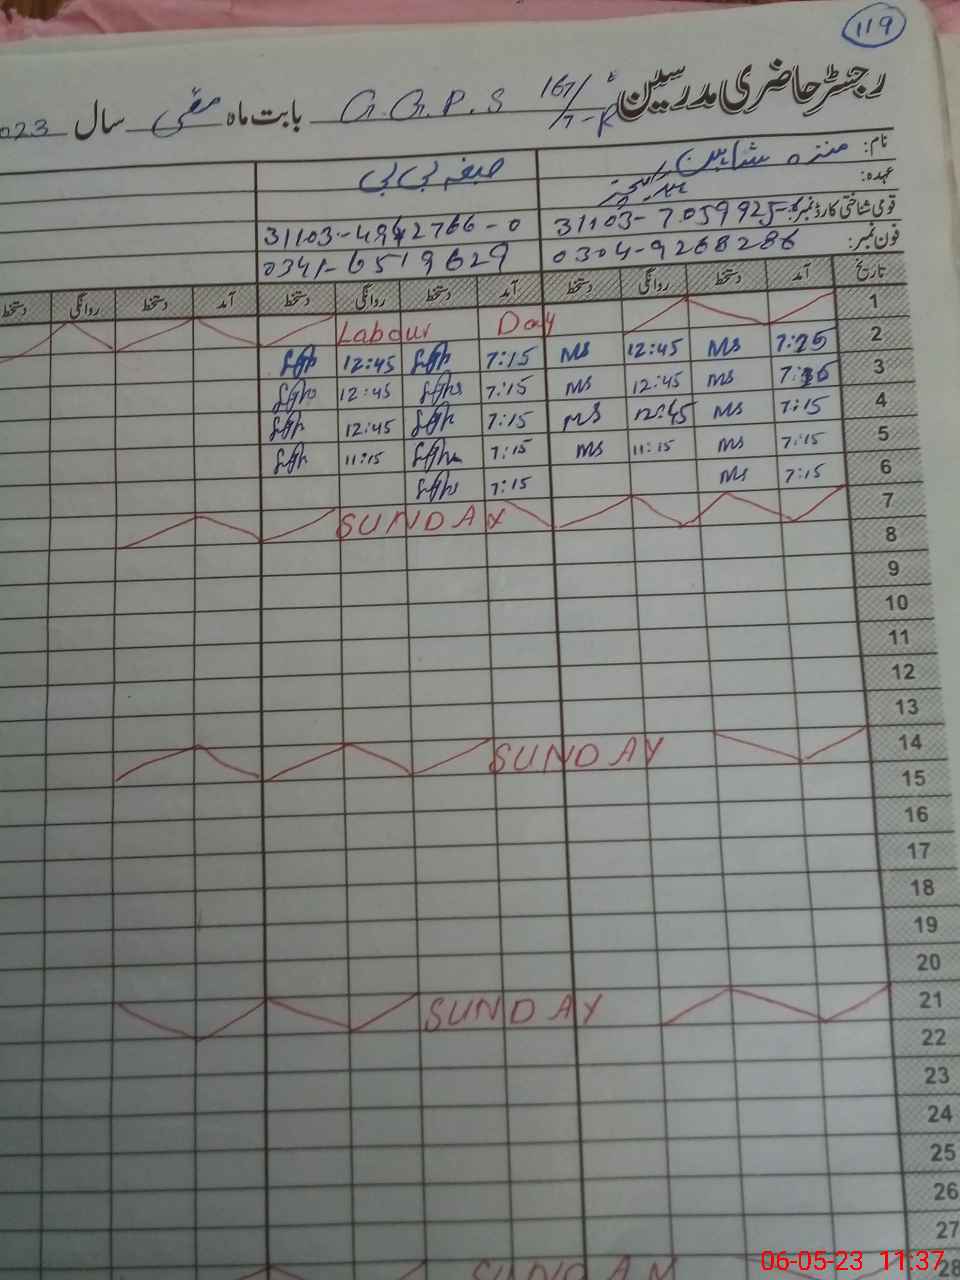 119
رجسٹر حاضری مدرسین G.G.P.S 167/7-R بابت ماہ مئی سال 2023
نام: شاہین صفیہ بی بی
عہدہ: ہیڈ ٹیچر
قومی شناختی کارڈ نمبر: 31103-7059925- 31103-4942766-0
فون نمبر: 0304-9268286 0341-6519629
تاریخ آمد دستخط روانگی دستخط آمد دستخط روانگی دستخط آمد دستخط روانگی دستخط
1 Labour Day
2 7:25 MS 12:45 MS 7:15 12:45
3 MS 12:45 MS 7:15 12:45
4 7:15 MS 12:45 MS 7:15 12:45
5 7:15 MS 11:15 MS 7:15 11:15
6 7:15 MS 7:15
7 SUNDAY
8
9
10
11
12
13
14 SUNDAY
15
16
17
18
19
20
21 SUNDAY
22
23
24
25
26
27
28 SUNDAY
06-05-23 11:37